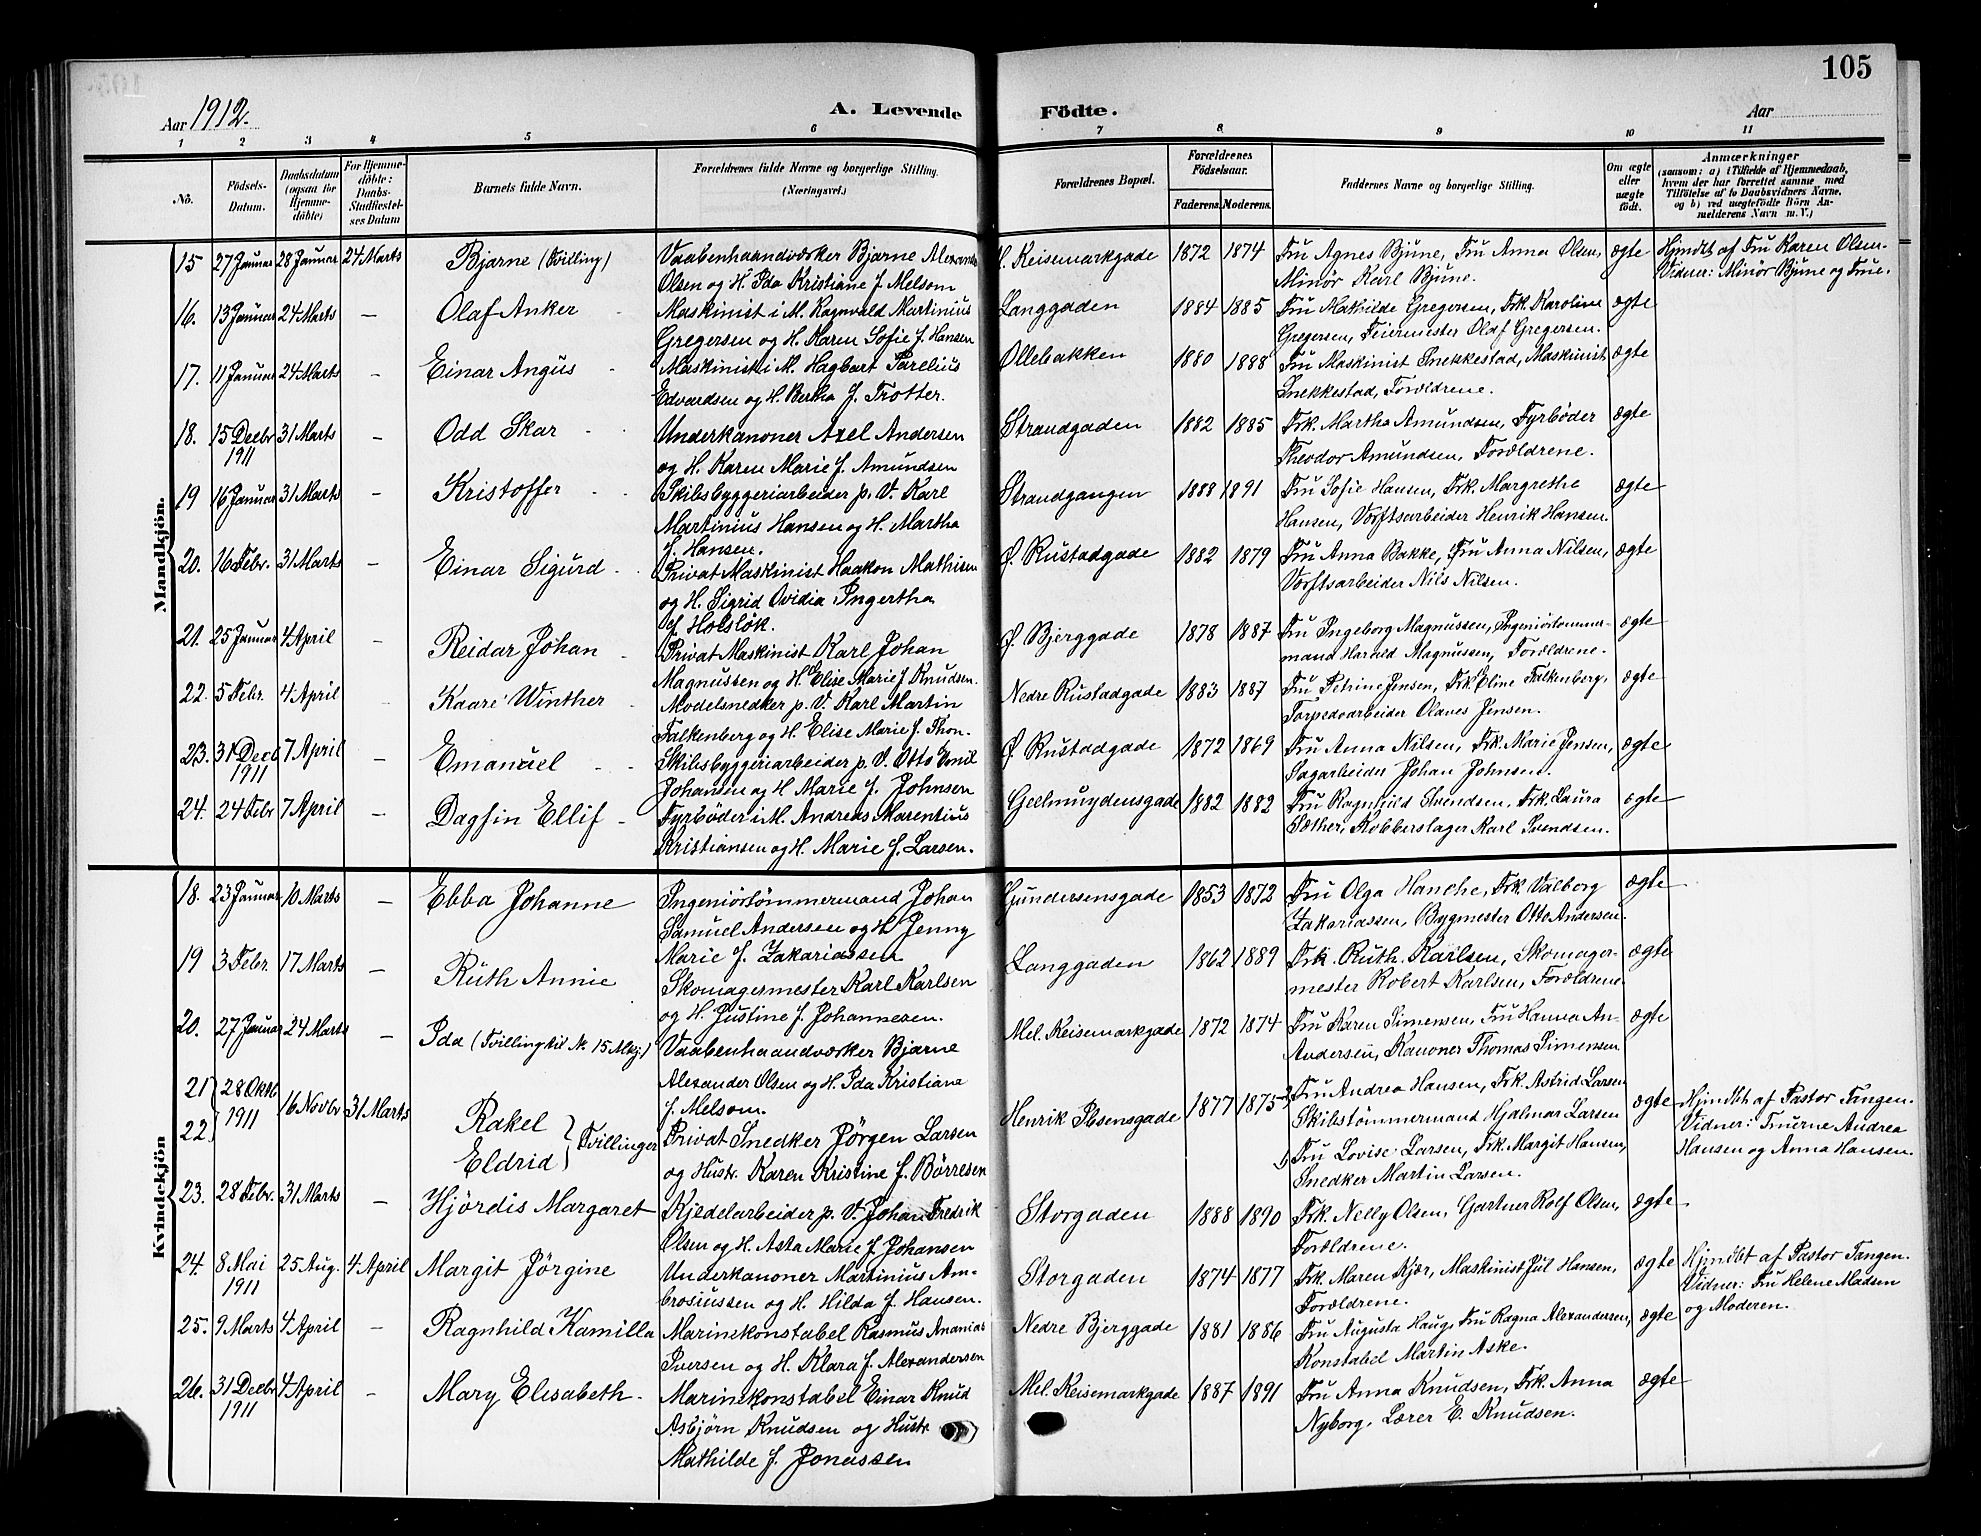 105
Aar 1912.
A. Levende Födte.
Aar
1 2 3 4 5 6 7 8 9 10 11
Nö.
Födsels-Datum.
Daabsdatum (ogsaa for Hjemmedöbte)
For Hjemmedöbte: Daabs-Stadfæstelses Datum
Barnets fulde Navn.
Forældrenes fulde Navne og borgerlige Stilling. (Næringsvei.)
Forældrenes Bopæl.
Forældrenes Födselsaar.
Faderens. Moderens.
Faddernes Navne og borgerlige Stilling.
Om ægte eller uægte födt.
Anmærkninger
(saasom: a) i Tilfælde af Hjemmedaab, hvem der har forrettet samme med Tilföielse af to Daabsvidners Navne, og b) ved uægtefödte Börn Anmelderens Navn m. V.)
Mandkjön.
15 27 Januar 28 Januar 24 Marts Bjarne (Tvilling) Vaabenhaandværker Bjarne Alexander M. Keisemarkgade 1872 1874 Fru Agnes Bjune, Fru Anna Olsen, ægte Hjmdbt af Fru Karen Olsen.
Olsen og H. Ida Kristiane f. Melsom Minör Karl Bjune. Vidner: Minör Bjune og Frue.
16. 13 Januar 24 Marts — Olaf Anker Maskinist i M. Ragnvald Martinius Langgaden 1884 1885 Fru Mathilde Gregersen, Frk. Karoline ægte
Gregersen og H. Karen Sofie f. Hansen Gregersen, Feiermester Olaf Gregersen.
17. 11 Januar 24 Marts — Einar Angus Maskinist i M. Hagbart Parelius Ollebakken 1880 1888 Fru Maskinist Snekkestad, Maskinist ægte
Edvardsen og H. Bertha f. Trotter. Snekkestad, Forældrene.
18. 15 Decbr 31 Marts — Odd Skar Underkanoner Axel Andersen Strandgaden 1882 1885 Frk. Martha Amundsen, Fyrbøder ægte
1911 og H. Karen Marie f. Amundsen Theodor Amundsen, Forældrene.
19 16 Januar 31 Marts — Kristoffer Skibsbyggeriarbeider p. V. Karl Strandgangen 1888 1891 Fru Sofie Hansen, Frk. Margrethe ægte
Martinius Hansen og H. Martha Hansen, Værftsarbeider Henrik Hansen.
f. Hansen.
20. 16 Febr. 31 Marts — Einar Sigurd Privat Maskinist Haakon Mathisen Ø. Rustadgade 1882 1879 Fru Anna Bakke, Fru Anna Nilsen, ægte
og H. Sigrid Ovidia Ingertha Værftsarbeider Nils Nilsen.
f. Holsløk.
21. 25 Januar 4 April — Reidar Johan Privat Maskinist Karl Johan Ø. Bjerggade 1878 1887 Fru Ingeborg Magnussen, Ingeniörtömmer- ægte
Magnussen og H. Elise Marie f. Knudsen. mand Harald Magnussen, Forældrene.
22. 5 Febr. 4 April — Kaare Winther Modelsnedker p. V. Karl Martin Nedre Rustadgade 1883 1887 Fru Petrine Jensen, Frk. Eline Falkenberg, ægte
Falkenberg og H Elise Marie f. Thon. Torpedoarbeider Olaves Jensen.
23. 31 Decb 7 April — Emanuel Skibsbyggeriarbeider p. V. Otto Emil Ø Rustadgade 1872 1869 Fru Anna Nilsen, Frk. Marie Jensen, ægte
1911 Johansen og H Marie f. Johnsen Sagarbeider Johan Johnsen.
24. 24 Febr 7 April — Dagfin Ellif Fyrbøder i M. Andreas Marentius Geelmuydensgade 1882 1882 Fru Ragnhild Svendsen, Frk. Laura ægte
Kristiansen og H. Marie f. Larsen. Sæther, Kobberslager Karl Svendsen.
Kvindekjön
18. 23 Januar 10 Marts — Ebba Johanne Ingeniörtömmermand Johan Gundersensgade 1853 1872 Fru Olga Hanche, Frk. Valborg ægte
Samuel Andersen og H Jenny Zakariassen, Bygmester Otto Andersen.
Marie f. Zakariassen
19 3 Febr. 17 Marts — Ruth Annie Skomagermester Karl Karlsen Langgaden 1862 1889 Frk. Ruth. Karlsen, Skomager- ægte
og H. Justine f. Johannesen. mester Robert Karlsen, Forældrene.
20. 27 Januar 24 Marts — Ida (Tvilling til No 15 Mkj.) Vaabenhaandværker Bjarne Mel. Keisemarkgade 1872 1874 Fru Karen Simensen, Fru Hanna An- ægte
Alexander Olsen og H. Ida Kristiane Andersen, Kanoner Thomas Simensen
f. Melsom.
21 28 Oktb 16 Novbr 31 Marts Rakel } Tvillinger Privat Snedker Jörgen Larsen Henrik Ibsensgade 1877 1875 Fru Andrea Hansen, Frk. Astrid Larsen ægte Hjmdbt af Pastor Tangen.
1911 Skibstömmermand Hjalmar Larsen Vidner: Fruerne Andrea
22 Eldrid og Hustr. Karen Kristine f. Börresen Fru Lovise Larsen, Frk. Margit Hansen, Hansen og Anna Hansen.
Snedker Martin Larsen.
23. 28 Febr. 31 Marts — Hjördis Margaret Kjedelarbeider p. V. Johan Fredrik Storgaden 1888 1890 Frk. Nelly Olsen, Gartner Rolf Olsen, ægte
Olsen og H. Asta Marie f. Johansen Forældrene.
24. 8 Mai 25 Aug. 4 April Margit Jörgine Underkanoner Martinius Am- Storgaden 1874 1877 Frk. Maren Kjær, Maskinist Jul Hansen, ægte Hjmdbt af Pastor Tangen.
1911 brosiussen og H. Hilda f. Hansen. Forældrene. Vidner: Fru Helene Madsen
og Moderen.
25. 9 Marts 4 April — Ragnhild Kamilla Marinekonstabel Rasmus Ananias Nedre Bjerggade 1881 1886 Fru Augusta Haug, Fru Ragna Alexandersen, ægte
Iversen og H. Klara f. Alexandersen Konstabel Martin Aske.
26. 31 Decbr 4 April — Mary Elisabeth Marinekonstabel Einar Knud Mel. Keisemarkgade 1887 1891 Fru Anna Knudsen, Frk. Anna ægte
1911 Asbjørn Knudsen og Hustr Nyborg, Lærer E. Knudsen.
Mathilde f. Jonassen